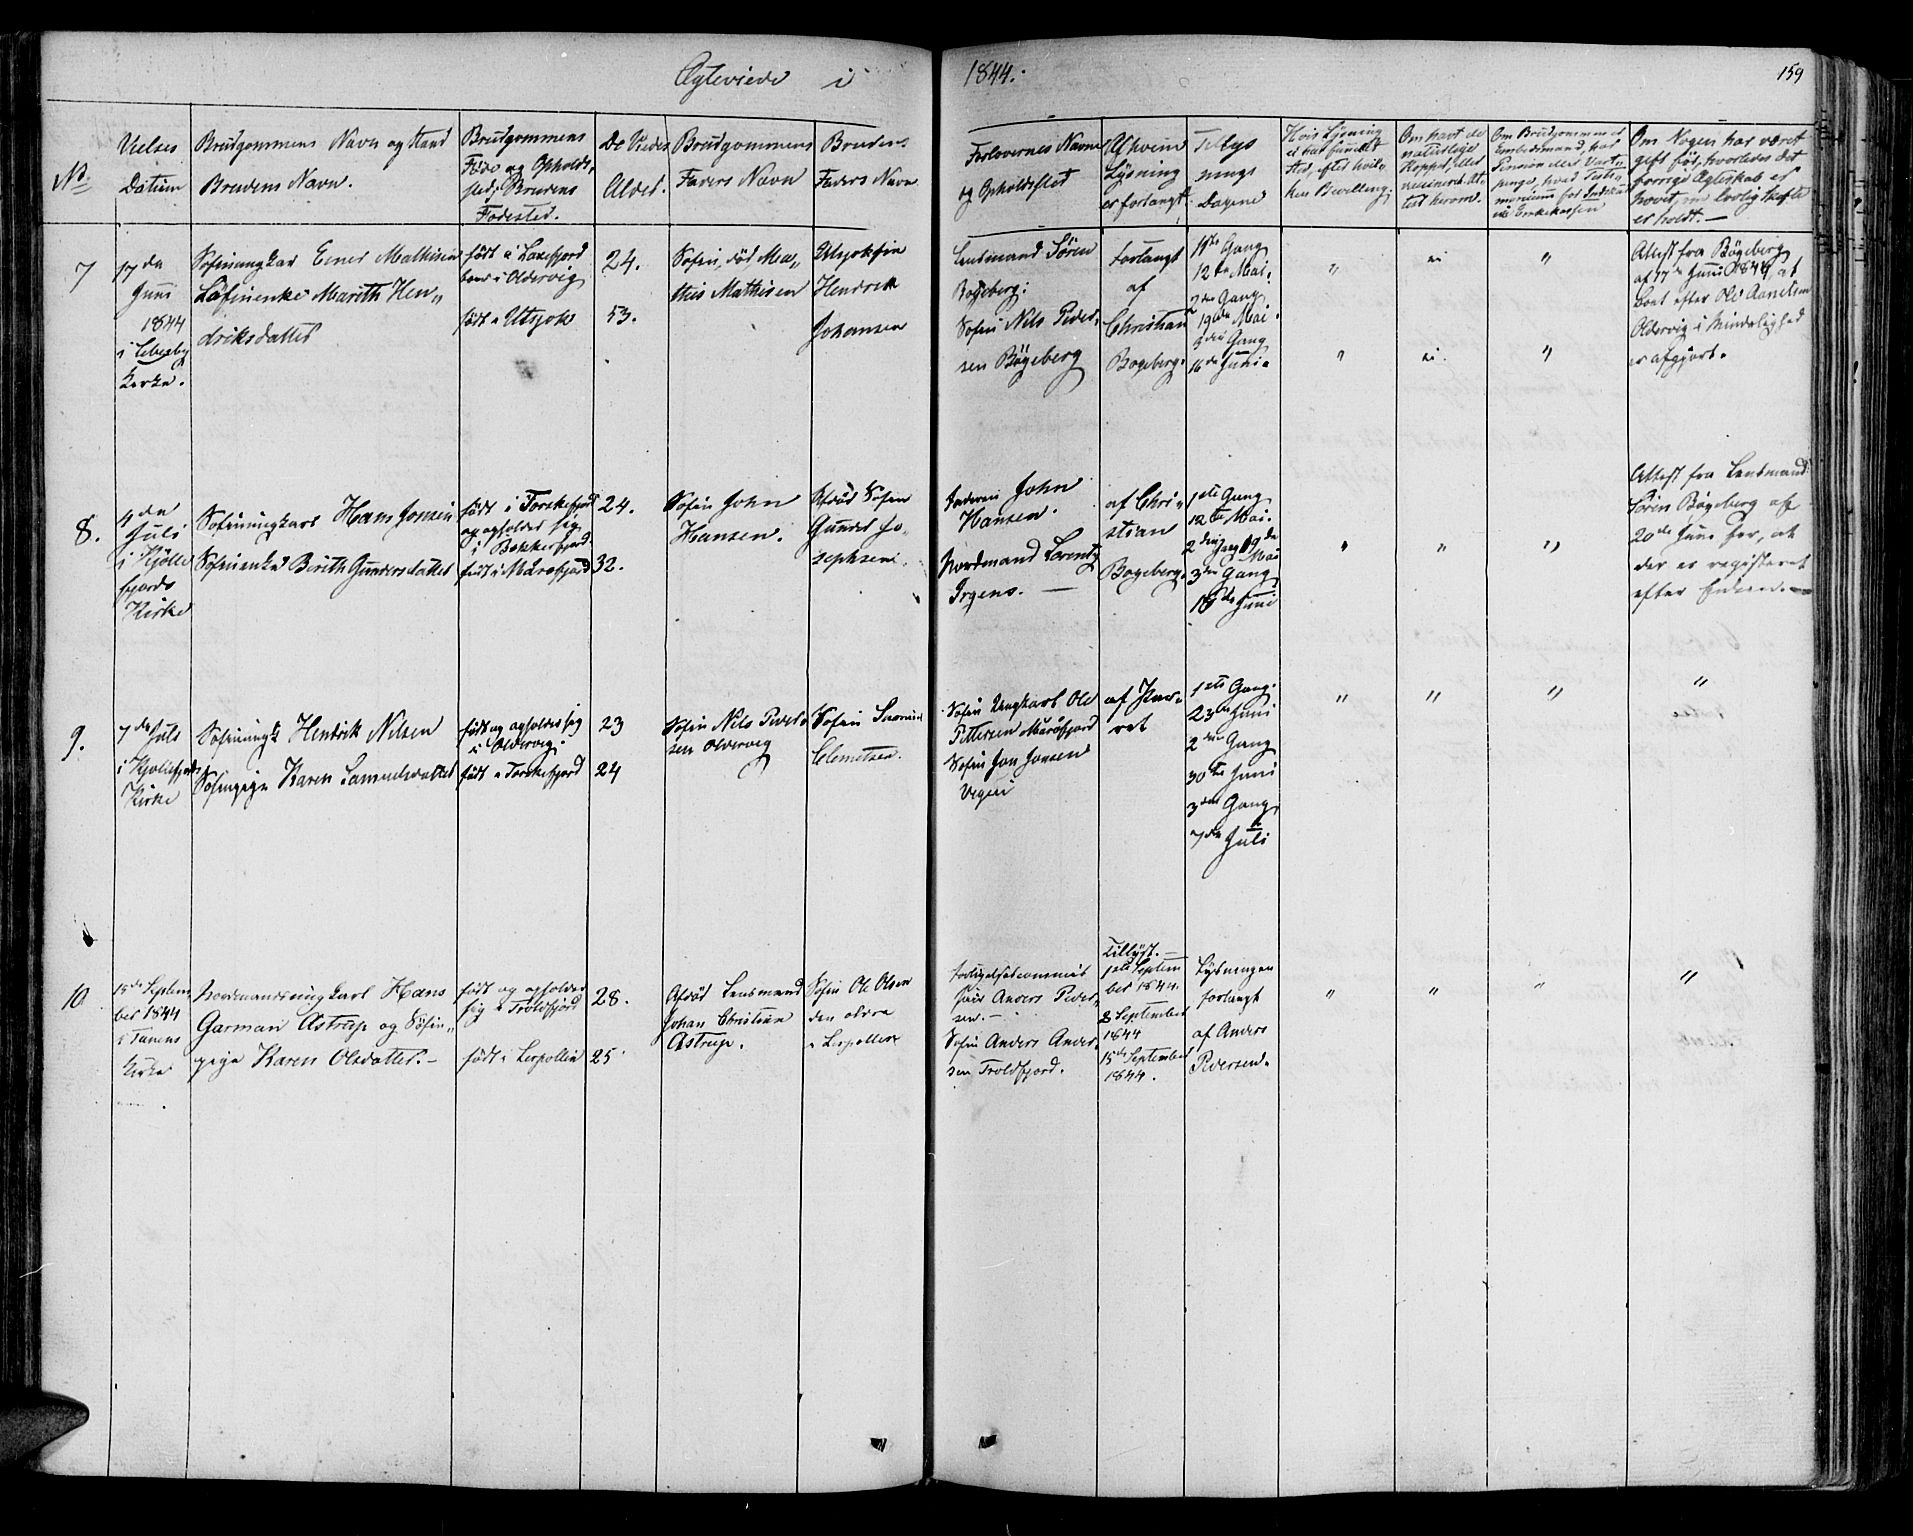 Ægteviede i 1844.
159
No
Vielses Datum
Brudgommens Navn og Stand
Brudens Navn.
Brudgommens Føde og Opholds, sted; Brudens Fødested.
De Viedes Alder.
Brudgommens Faders Navn
Brudens Faders Navn
Forloverens Navne og Opholdssted
Af hvem Lysning er forlangt
Tillys nings Dagene
Hvis Lysning ei har fundet Sted, efter hvil, ken Bevilling;
Om havt de naturlige Kopper, eller vaccineret. At, test herom.
Om Brudgommen er Embedsmand, har Pension eller Vart, penge, hvad Testi, monium for Indskud i Enkekassen
Om Nogen har været gift før, hvorledes det forrige Ægteskab er hævet, om lovlig Skifte er holdt. —
7
17de Juni 1844 i Lebesby Kirke.
Søfinungkar Einer Mathisen
Søfinenke Marith Hen,,
driksdatter
født i Laxefjord
boer i Oldervig
født i Utsjok
24.
53.
Søfin, død, Ma,,
this Mathisen
Utsjokfin
Hendrik
Johansen
Lensmand Søren
Bøgeberg:
Søfin Nils Peder,
sen Bøgeberg
Forlangt
af
Christian
Bogeberg.
1ste Gang
12te Mai.
2den Gang
19de Mai.
3die Gang
16de Juni.
"
"
"
Attest fra Bøgeberg
af 17de Juni 1844, at
Boet efter Ole Aanetsen
Oldervig i Mindelighed
er afgjort.
8.
7de
Juli
i Kjølle
fjords
Kirke
Søfinungkarl Hans Jonsen
Søfinenke Berith Gundersdatter
født i Torskefjord
og opholder sig
i Bekkerfjord.
født i Mårøfjord
24.
32.
Søfin John
Hansen.
Afdød Søfin
Gunder Jo,
sephsen.
Faderen John
Hansen.
Nordmand Lorentz
Irgens. —
af Chri,,
stian
Bogeberg.
1ste Gang
12te Mai.
2den Gang 19de
Mai
3die Gang
16de Juni
"
"
"
Attest fra Lensmand
Søren Bøgeberg af
20de Juni før, at
der er registeret
efter Enken. —
9.
7de Juli
i Kjøllefjords
Kirke
Søfinungk Hendrik Nilsen
Søfinpige Karen Samuelsdatter
født og opholder sig
i Oldervig.
født i Torskefjord
23
24
Søfin Nils Peder,
sen Oldervig
Søfin Samuel
Clemetsen.
Søfin Ungkarl Ole
Pettersen Mårøfjord
Søfin Jon Jonsen
af Par,
ret
1ste Gang.
23de Juni
2den Gang
30te Juni
3die Gang
7de Juli
"
"
"
"
10
15de Septem,
ber 1844
i Tanens
Kirke
Nordmandsungkarl Hans
Garman Astrup og Søfin,,
pige Karen Olsdatter. —
født og opholder
sig i Troldfjord
født i Lerpollen
28.
25.
Afdød Lensmand
Johan Christian
Astrup.
Søfin Ole Olsen
den ældre
i Lerpollen
Forligelsescommis
sair Anders Peder,,
sen. —
Søfin Anders Ander,
sen Troldfjord.
Tillyst. —
1ste Septem
ber 1844.
8 September
1844
15de September
1844.
Lysningen
forlangt
af Anders
Pedersen.
"
"
"
"